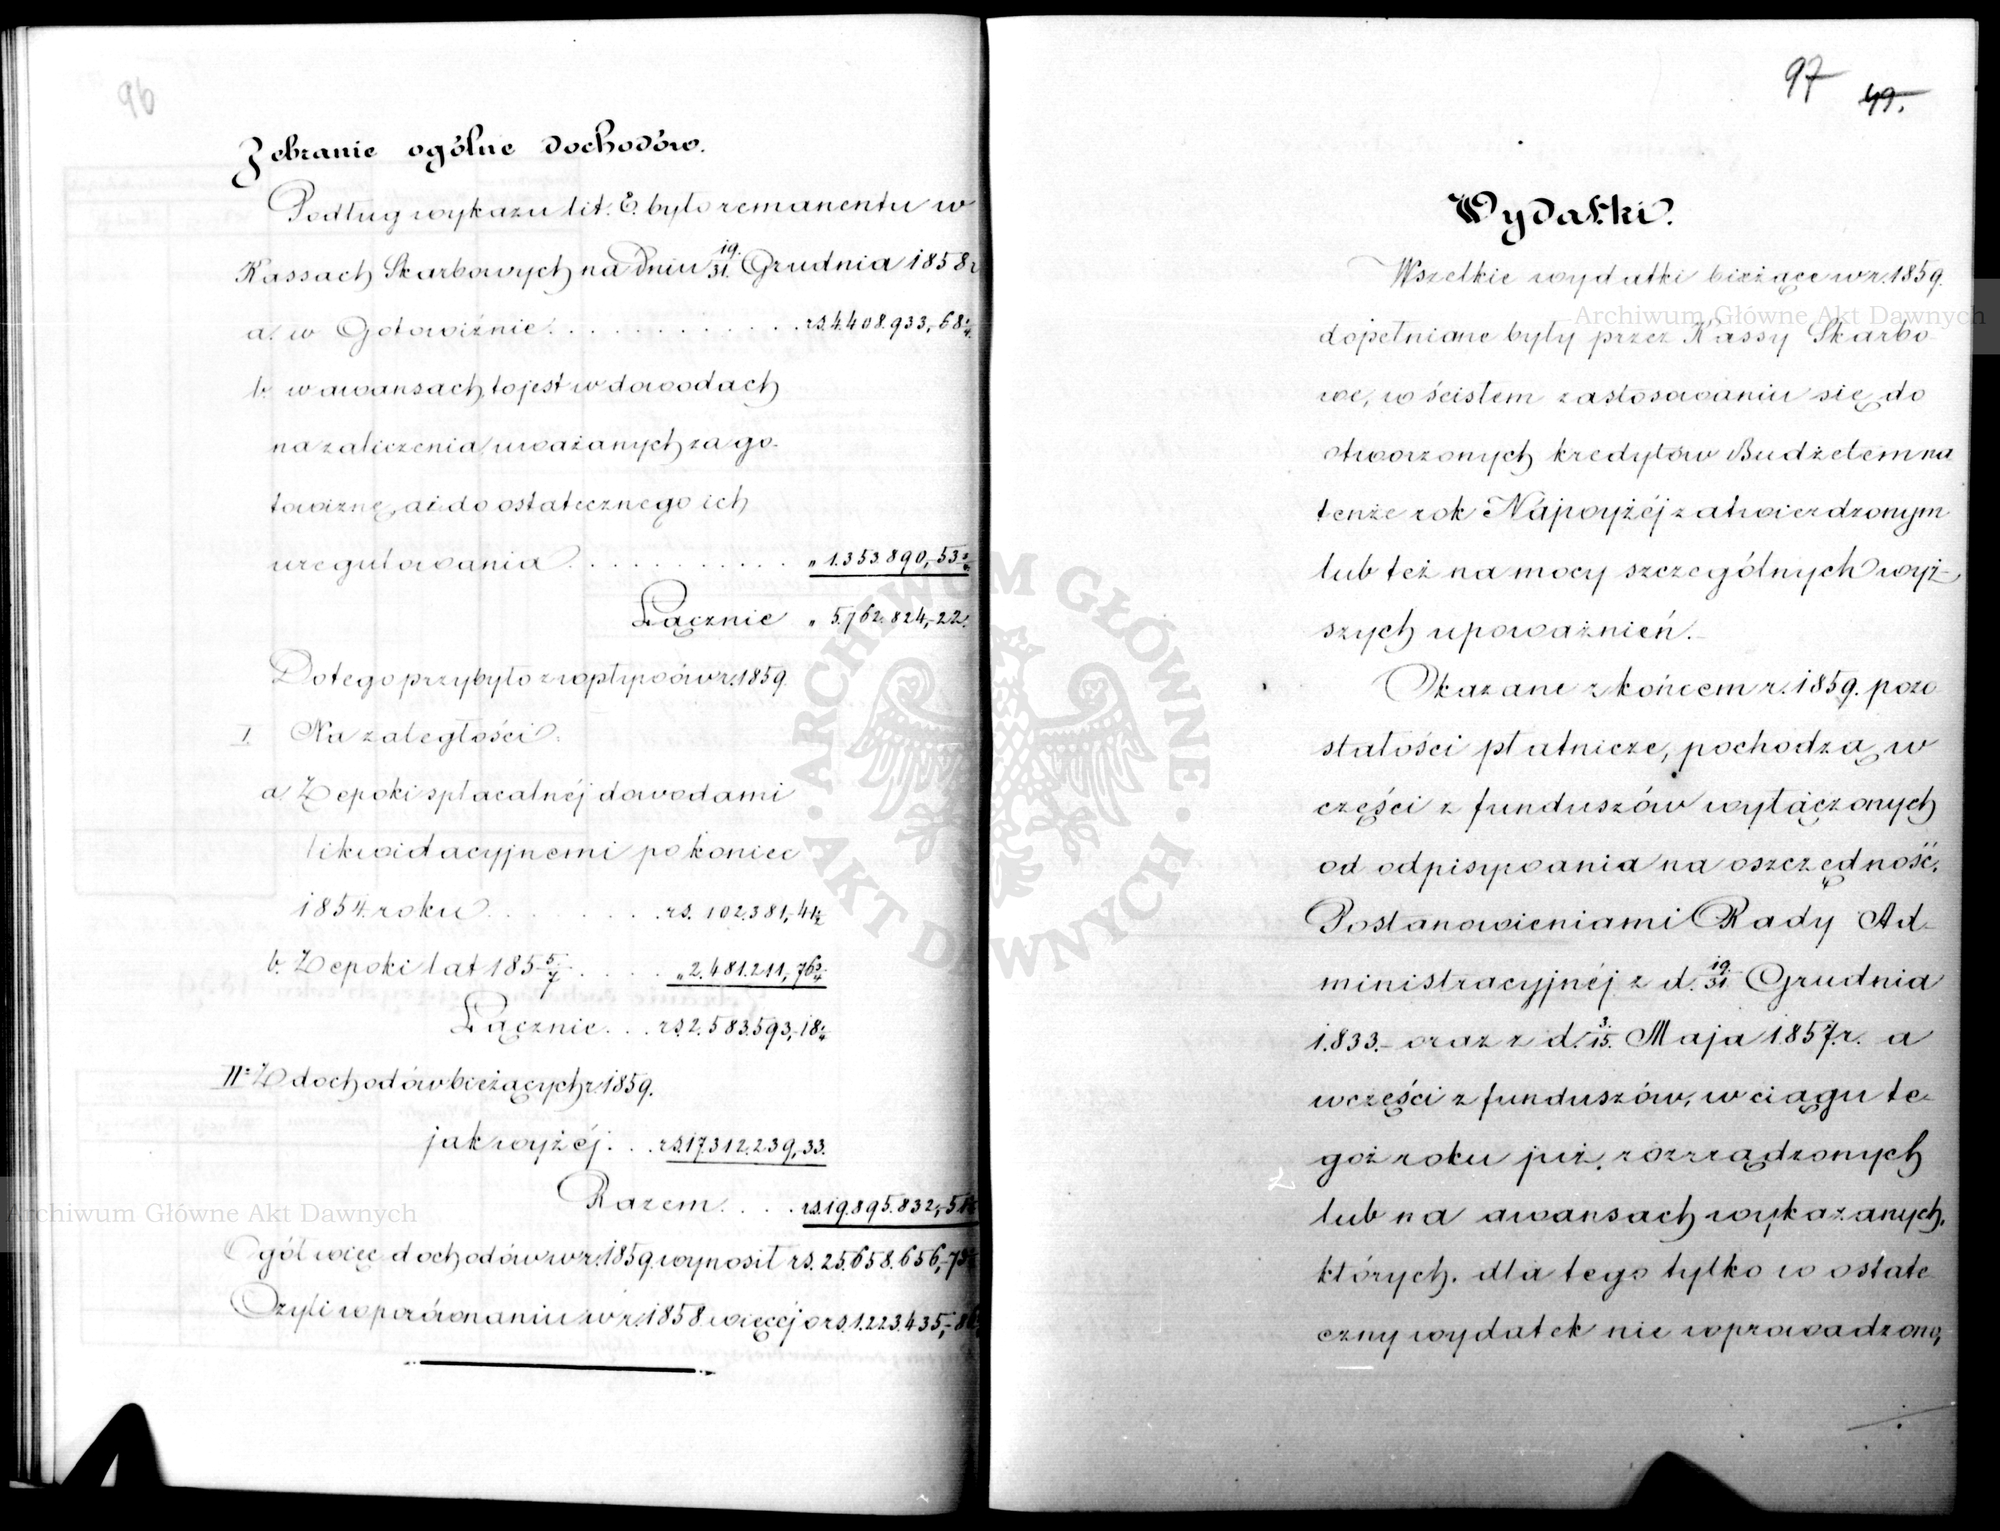 96
Zebranie ogólne dochodów.
Podług wykazu lit. E. było remanentu w
Kassach Skarbowych na Dniu 19/31. Grudnia 1858 r
a. w Gotowiźnie . . . . . . . . . . . rs. 4.408.933,-68 3/4.
b. w awansach, to jest w dowodach
na zaliczenia, uważanych za go-
towiznę, aż do ostatecznego ich
uregulowania . . . . . . . . . . „ 1.353.890,-53 2/4
Łącznie „ 5.762.824,-22.
Do tego przybyło z wpływów w r. 1859.
I. Na zaległości:
a. Z epoki spłacalnéj dowodami
likwidacyjnemi po koniec
1854. roku . . . . . . . rs. 102.381,-41 1/2
b. Z epoki lat 185 5/7 . . . . „ 2.481.211,-76 3/4
Łącznie . . . rs. 2.583.593,-18 1/4
II. Z dochodów bieżących r. 1859.
jak wyżéj . . . rs. 17.312.239,-33.
Razem . . . . rs. 19.895.832,-51
Ogół więc dochodów w r. 1859. wynosił rs. 25.658.656,-73
Czyli w porównaniu z r. 1858. więcéj o rs. 1.223.435,-86
97
49.
Wydatki.
Wszelkie wydatki bieżące w r. 1859.
dopełniane były przez Kassy Skarbo
we, w ścisłem zastosowaniu się do
otworzonych kredytów Budżetem na
tenże rok Najwyżéj zatwierdzonym
lub też na mocy szczególnych wyż-
szych upoważnień.-
Okazane z końcem r. 1859. pozo
stałości płatnicze, pochodzą w
części z funduszów wyłączonych
od odpisywania na oszczędność,
Postanowieniami Rady Ad-
ministracyjnéj z d. 19/31 Grudnia
1833.- oraz z d. 3./15. Maja 1857. r. a
w części z funduszów, w ciągu te-
goż roku już, rozrządzonych
lub na awansach wykazanych,
których, dla tego tylko w ostate
czny wydatek nie wprowadzono,
Archiwum Główne Akt Dawnych
Archiwum Główne Akt Dawnych
· ARCHIWUM GŁÓWNE · AKT DAWNYCH